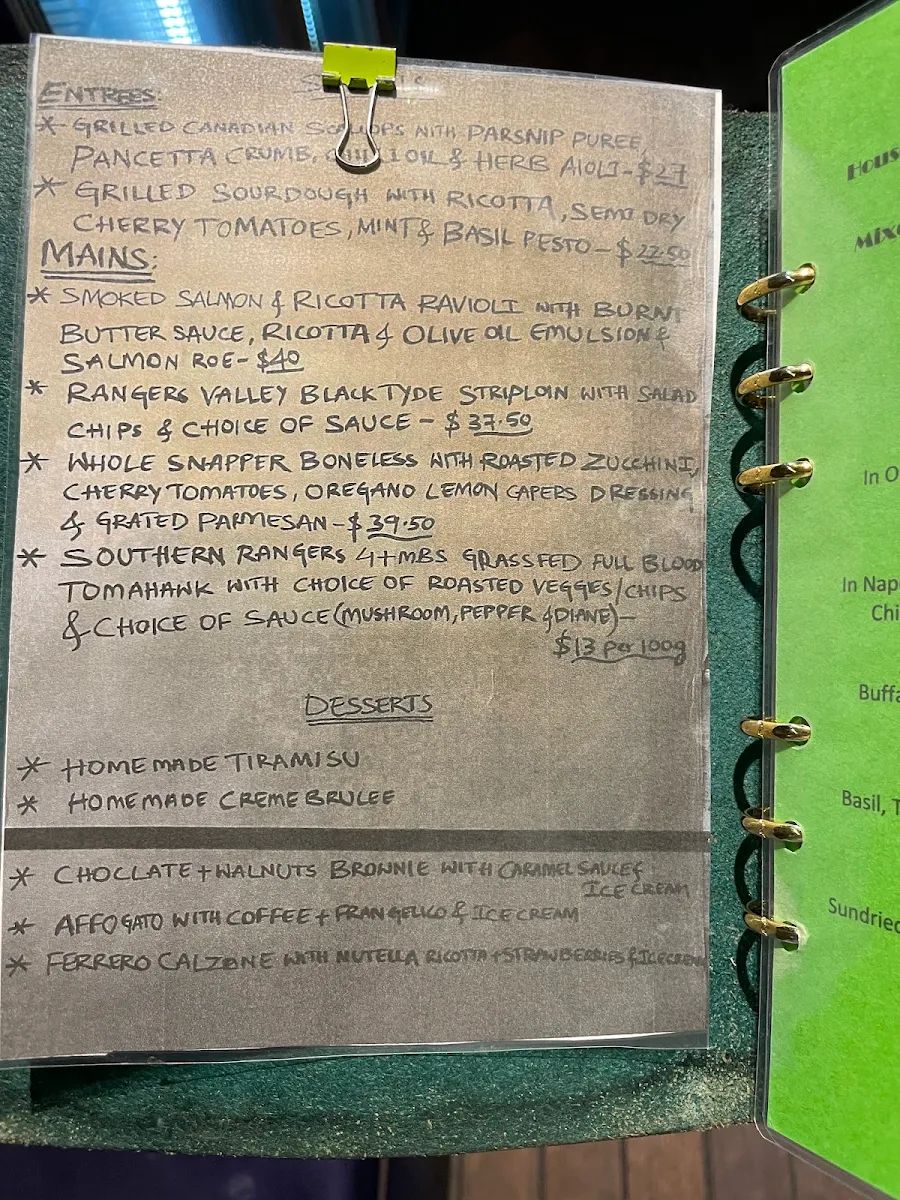 ENTREES:
* GRILLED CANADIAN SCALLOPS WITH PARSNIP PUREE,
PANCETTA CRUMB, CHILLI OIL & HERB AIOLI-$27
* GRILLED SOURDOUGH WITH RICOTTA, SEMI DRY
CHERRY TOMATOES, MINT & BASIL PESTO-$22.50
MAINS:
* SMOKED SALMON & RICOTTA RAVIOLI WITH BURNT
BUTTER SAUCE, RICOTTA & OLIVE OIL EMULSION &
SALMON ROE- $40
* RANGERS VALLEY BLACK TYDE STRIPLOIN WITH SALAD
CHIPS & CHOICE OF SAUCE - $37.50
* WHOLE SNAPPER BONELESS WITH ROASTED ZUCCHINI,
CHERRY TOMATOES, OREGANO LEMON CAPERS DRESSING
& GRATED PARMESAN-$39.50
* SOUTHERN RANGERS 4+MBS GRASSFED FULL BLOOD
TOMAHAWK WITH CHOICE OF ROASTED VEGGES/CHIPS
& CHOICE OF SAUCE (MUSHROOM, PEPPER & DIANE)-
$13 per 100g
DESSERTS
* HOMEMADE TIRAMISU
* HOMEMADE CREME BRULEE
* CHOCLATE + WALNUTS BROWNIE WITH CARAMEL SAUCE &
ICE CREAM
* AFFOGATO WITH COFFEE + FRANGELICO & ICE CREAM
* FERRERO CALZONE WITH NUTELLA RICOTTA + STRAWBERRIES & ICECREAM
In O
In Nap
Chi
Buffa
Basil, T
Sundried